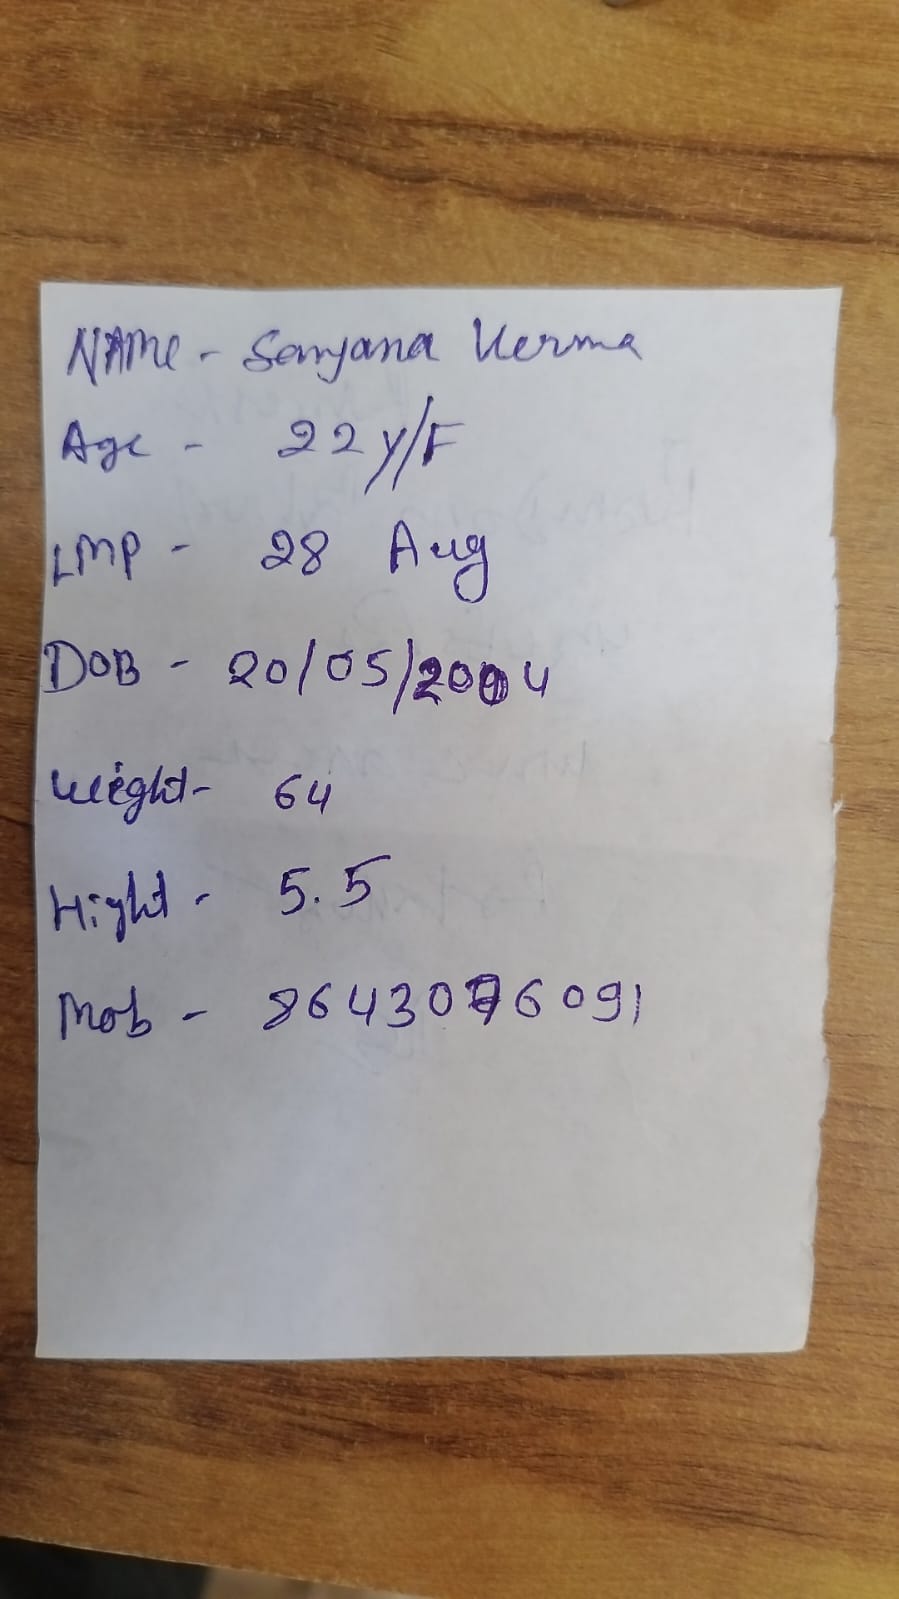 NAME - Sanjana Verma
Age - 22 y/F
LMP - 28 Aug
DOB - 20/05/2004
Weight - 64
Hight - 5.5
Mob - 8643076091